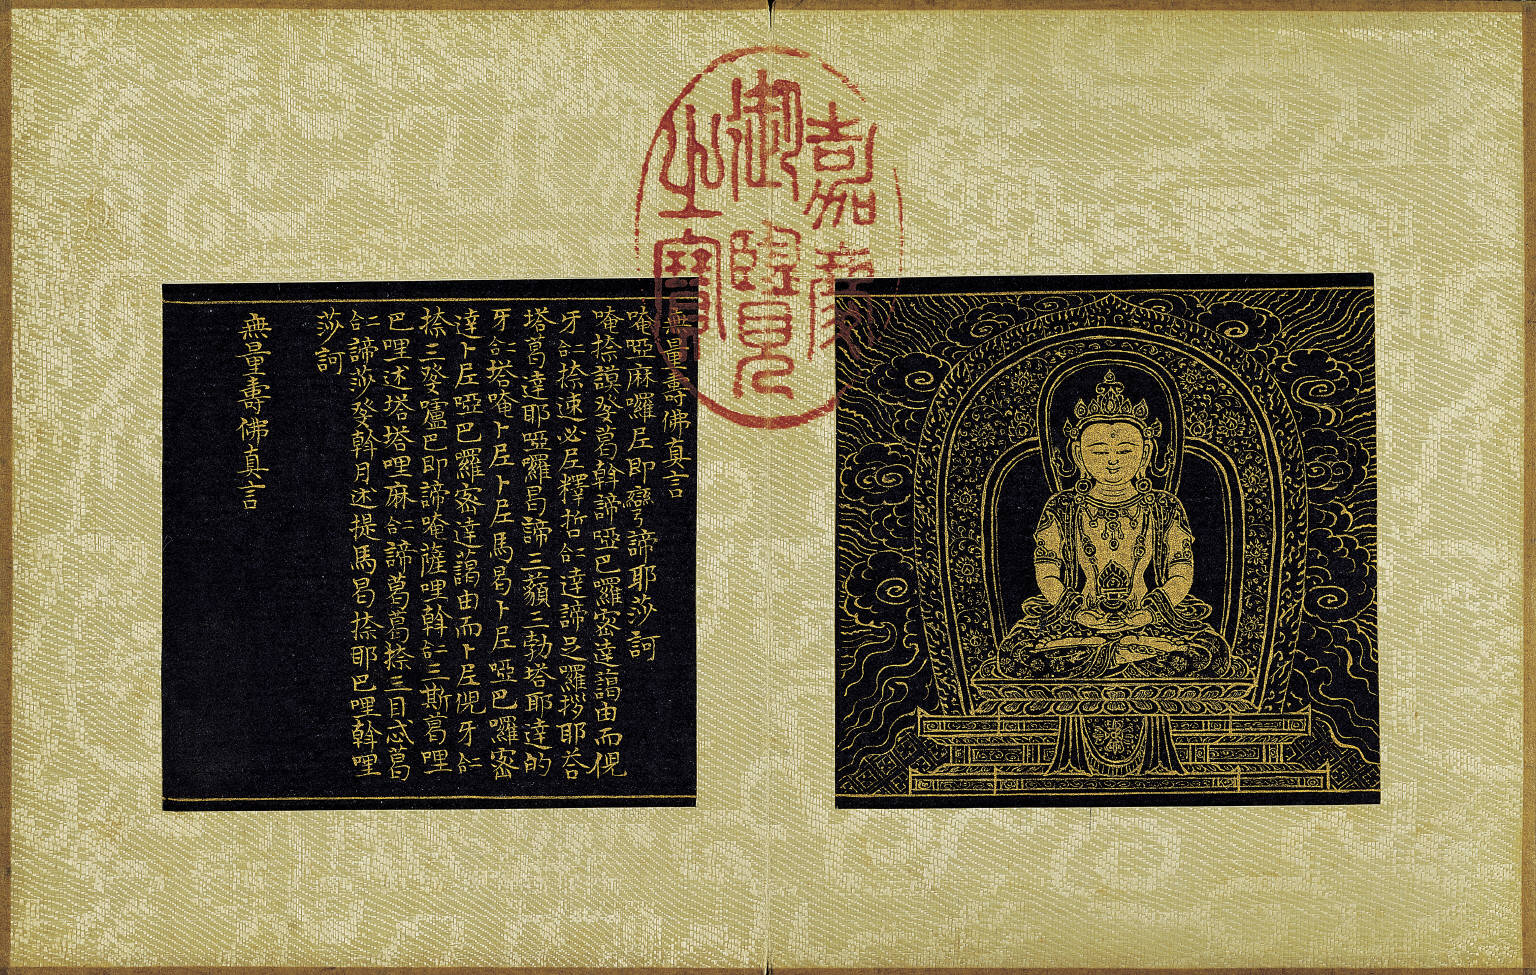 嘉慶
御覽
之寶
無量壽佛真言
唵啞麻囉尼即 諦耶莎訶
唵捺謨癹葛斡諦啞巴囉密達藹由而
牙 捺速必尼釋哲 達諦足囉拶耶荅
塔葛達耶啞囉曷諦三藐三勃塔耶達的
牙 塔唵卜尼卜尼馬曷卜尼啞巴囉密
達卜尼啞巴囉密達藹由而卜尼 牙
捺三癹嚧巴即諦唵薩哩斡 三斯葛哩
巴哩述塔塔哩麻 諦葛葛捺三目忒葛
諦莎癹斡月述提馬曷捺耶巴哩斡哩
莎訶
無量壽佛真言